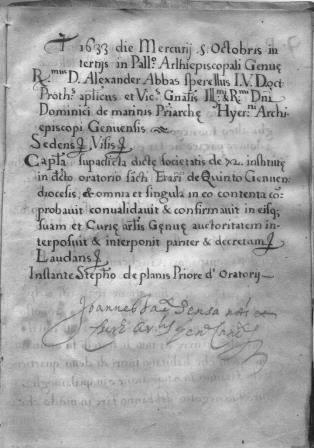 ✝ 1633 die Mercurij 5 Octobris in
tertijs in Pall.º Archiepiscopali Genuę
R.mus D. Alexander Abbas sperellus I.V. Doct
Proth.s ap͂licus et Vic.s Gn͂alis Ill.mi & R.mi Dn͂i
Dominici de marinis P͂riarchę Hyer.ni Archi-
episcopi Genuensis
Sedens & Visis &
Capl͂a supradicta dictę societatis de xx. institutę
in dc͂to oratorio sc͂ti Erasmi de Quinto Genuen͂
diocesis, & omnia et singula in eo contenta cō-
probauit conualidauit & confirmauit in eisq͂
suam et Curię Genuę auctoritatem in-
terposuit & interponit pariter & decretum &
Laudans &
Instante Stepħo de planis Priore d.i Oratorij
Joannes